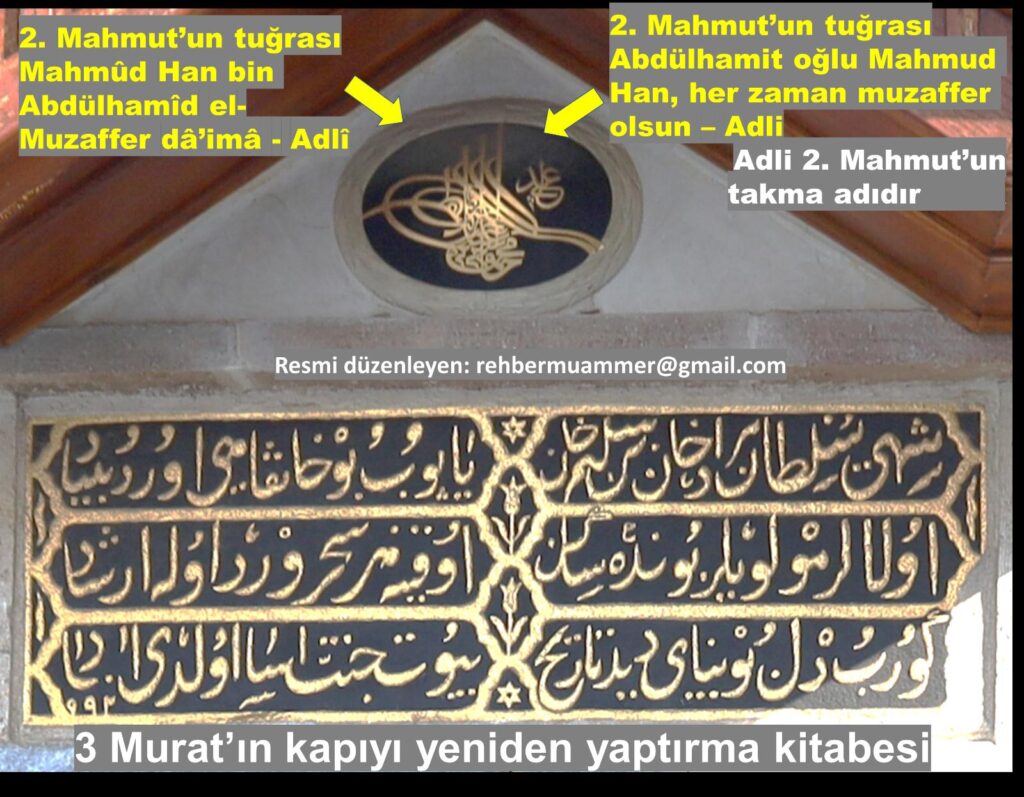 2. Mahmut’un tuğrası
Mahmûd Han bin
Abdülhamîd el-
Muzaffer dâ’imâ - Adlî
2. Mahmut’un tuğrası
Abdülhamit oğlu Mahmud
Han, her zaman muzaffer
olsun – Adli
Adli 2. Mahmut’un
takma adıdır
عدلی
Resmi düzenleyen: rehbermuammer@gmail.com
شهی سلطان مراد خان بن سلیم خان یاپوب بو خانقاهی اوردی بنیاد
اولالر مولویلر بونده ساکن اوقنه هر سحر ورد اوله ارشاد
گورب دل بو بنایی دیدی تاریخ بیوت جنت آسا اولدی آباد
٩٩٢
3 Murat’ın kapıyı yeniden yaptırma kitabesi